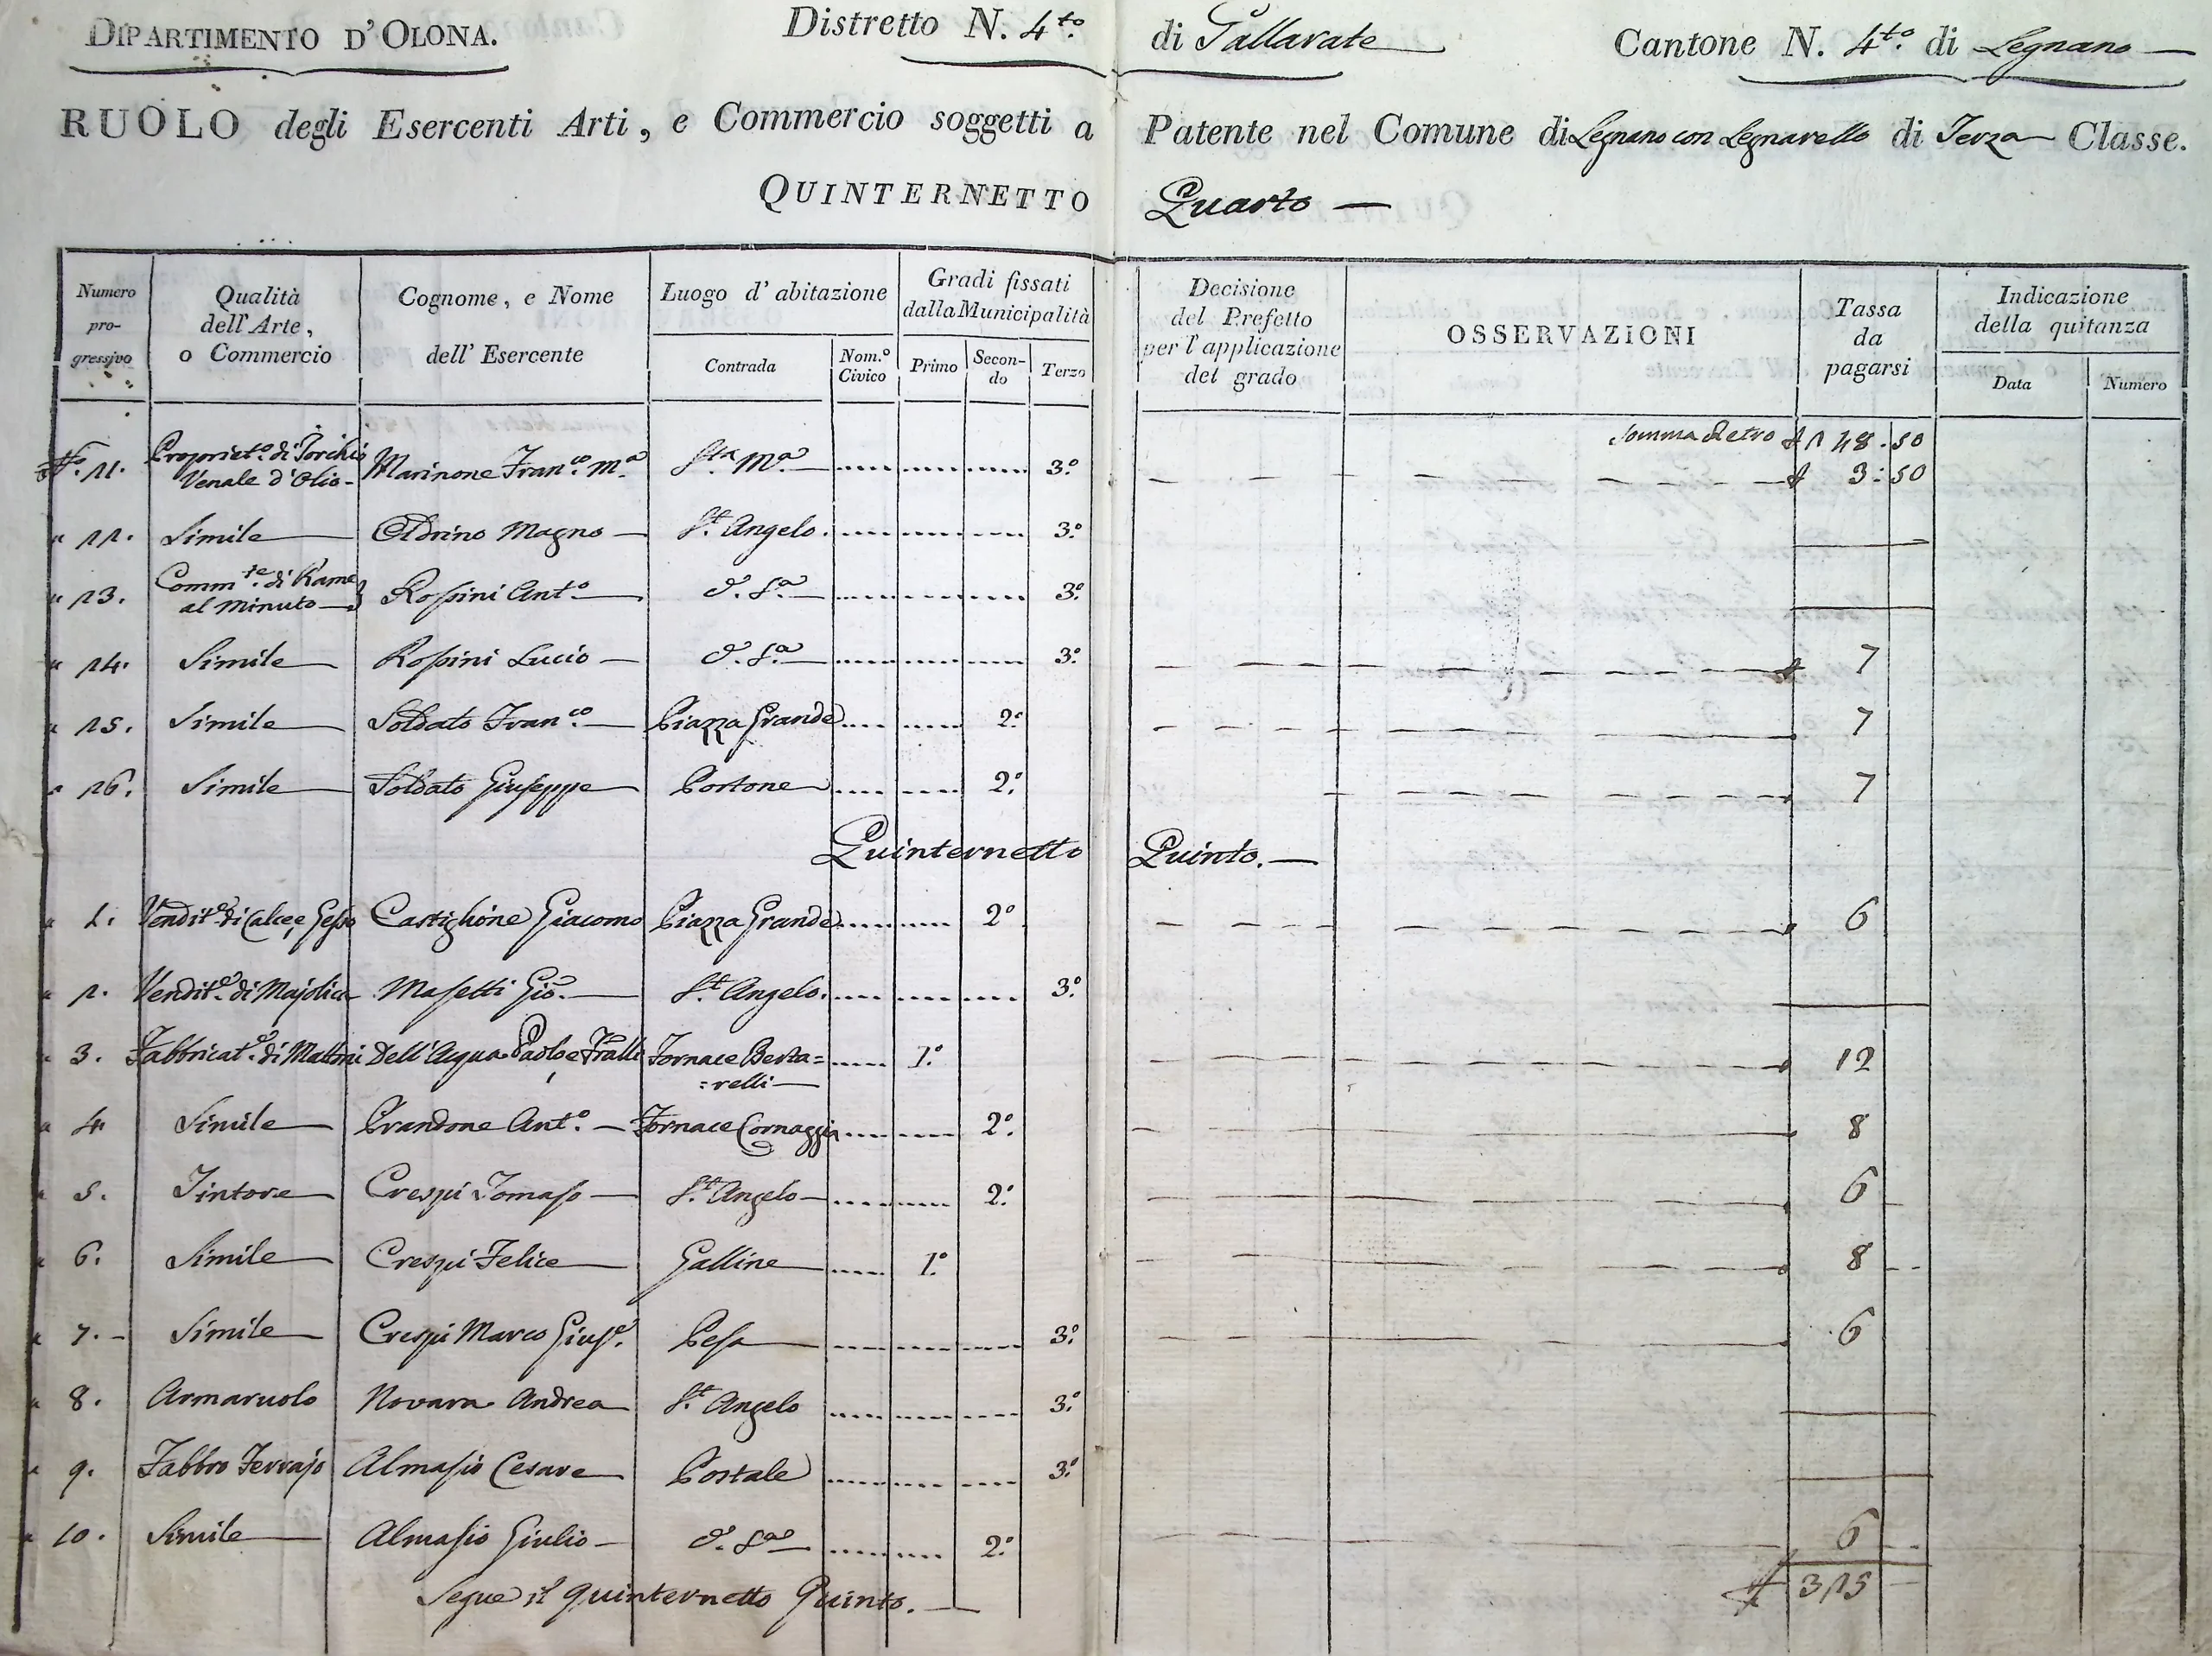 DIPARTIMENTO D'OLONA. Distretto N. 4.to di Gallarate Cantone N. 4.to di Legnano
RUOLO degli Esercenti Arti, e Commercio soggetti a Patente nel Comune di Legnano con Legnarello di Terza Classe.
QUINTERNETTO Quarto
Numero pro-gressivo
Qualità dell'Arte, o Commercio
Cognome, e Nome dell'Esercente
Luogo d'abitazione
Contrada
Nom.º Civico
Gradi fissati dalla Municipalità
Primo
Secon-do
Terzo
Decisione del Prefetto per l'applicazione del grado
OSSERVAZIONI
Tassa da pagarsi
Indicazione della quitanza
Data
Numero
Somma retro 48.50
11. Propriet.º di Torchio Venale d'Olio Marinone Fran.co M.a S.ta M.a 3.º 3:50
Simile Oldrino Magno S.t Angelo. 3.º
13. Comm.te di Rame al Minuto Rossini Ant.º d.a S.a 3.º
14. Simile Rossini Lucio d.a S.a 3.º 7
15. Simile Soldato Fran.co Piazza Grande 2.º 7
16. Simile Soldato Giuseppe Portone 2.º 7
Quinternetto Quinto.
1. Vendit.e di Calce, e Gesso Castiglione Giacomo Piazza Grande 2º 6
Vendit.e di Majolica Masetti Gio. S.t Angelo. 3.º
3. Fabbricat.e di Mattoni Dell'Acqua Paolo e Fralli Fornace Berta=
=relli 1.º 12
4 Simile Prandone Ant.º Fornace Cornaggia 2.º 8
5. Tintore Crespi Tomaso S.t Angelo 2.º 6
6. Simile Crespi Felice Galline 1.º 8
7. Simile Crespi Marco Gius.e Pesa 3.º 6
8. Armaruolo Novara Andrea S.t Angelo 3.º
9. Fabbro Ferrajo Almasio Cesare Postale 3.º
10. Simile Almasio Giulio d.a S.a 2.º 6
Segue il Quinternetto Quinto. 315